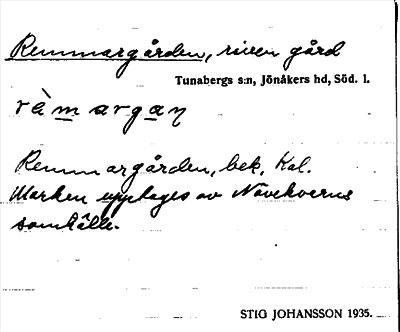 Remmargården, riven gård
Tunabergs s:n, Jönåkers hd, Söd. l.
rämargaŋ
Remmargården, bek. Kal.
Marken upptages av Navekvarns
samhälle.
STIG JOHANSSON 1935.